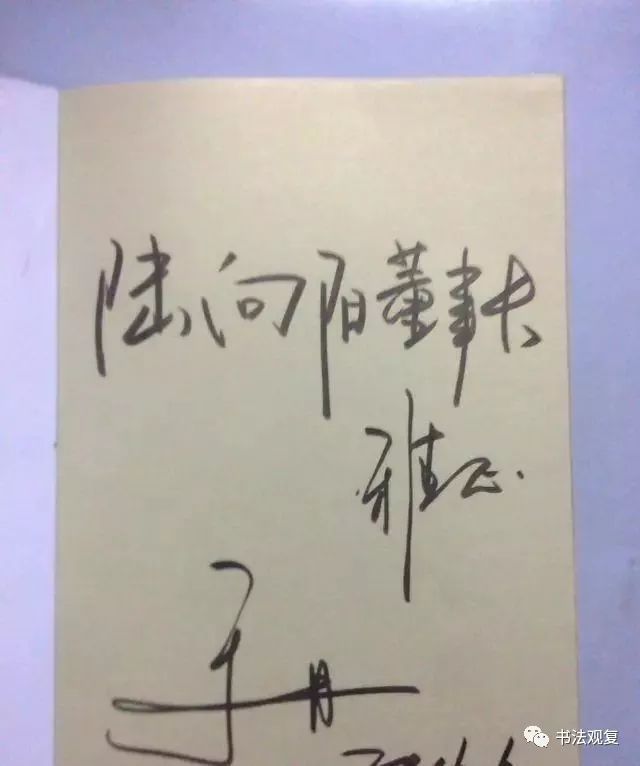 陆向阳董事长
雅正.
于丹
书法观复